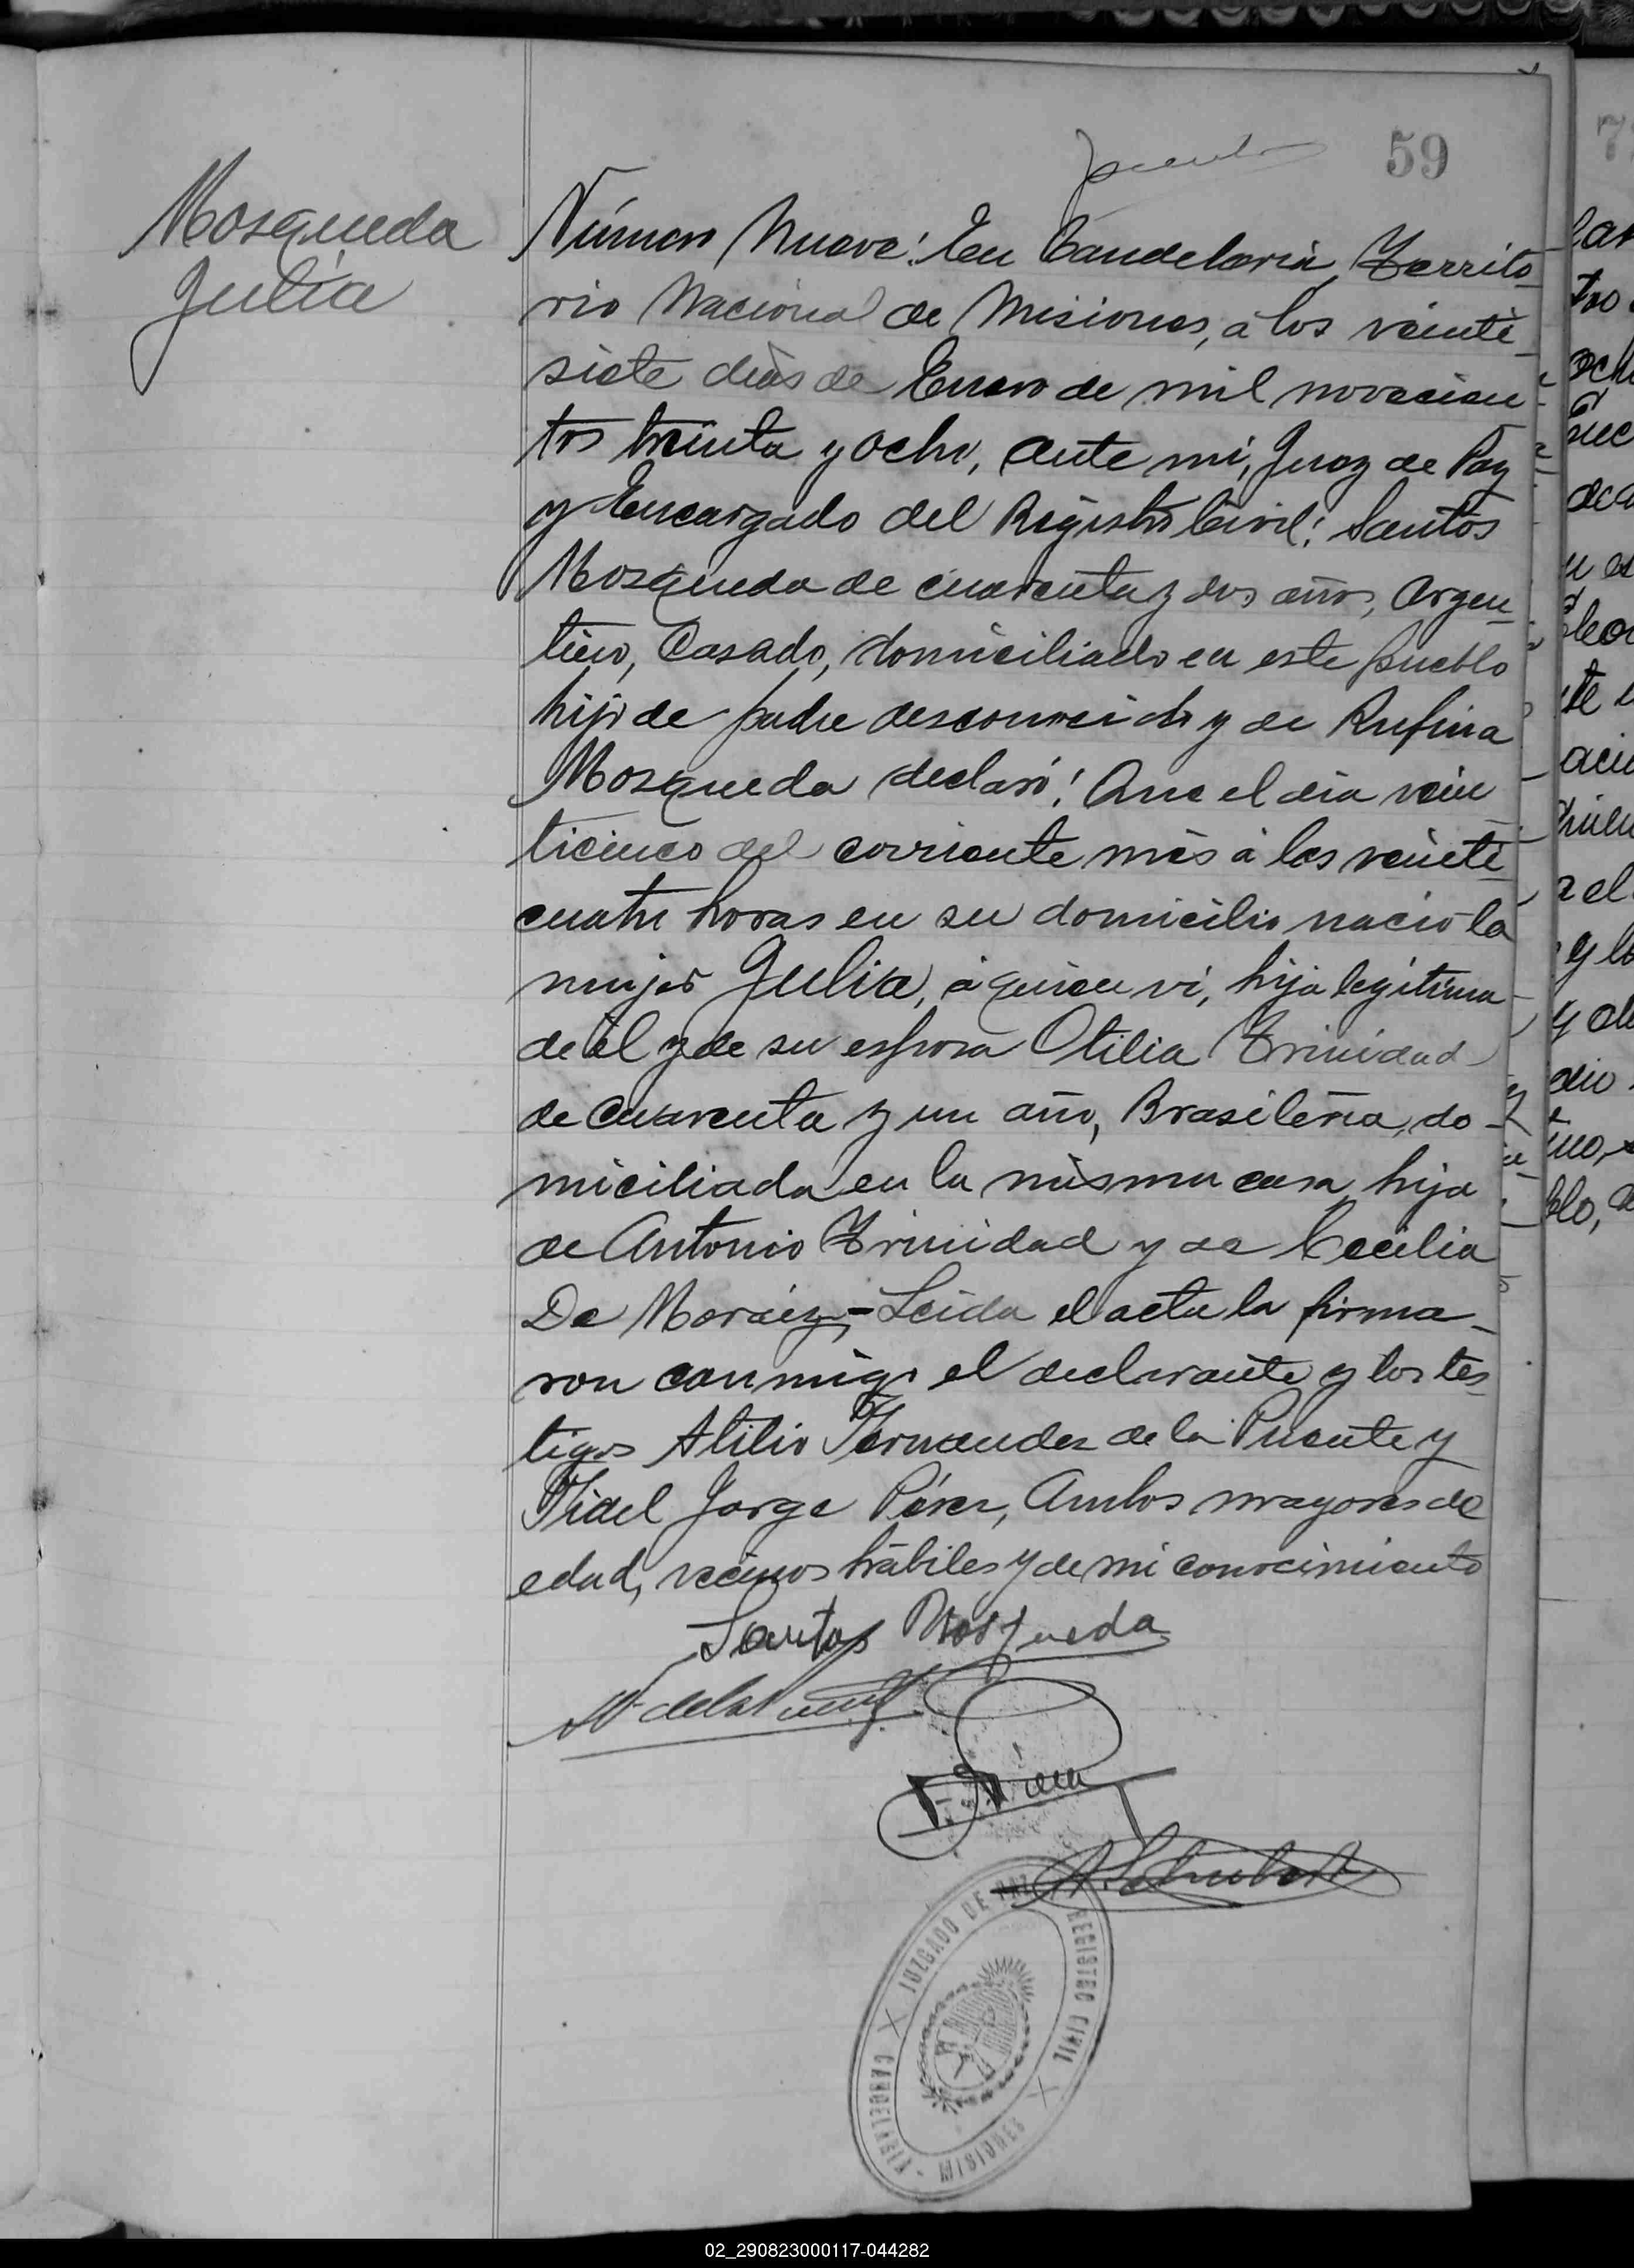 59
Mosqueda
Julia
Número Nueve: En Candelaria, Territo-
rio Nacional de Misiones, á los veinti-
siete días de Enero de mil novecien-
tos treinta y ocho, ante mi, Juez de Paz
y Encargado del Registro Civil: Santos
Mosqueda de cuarenta y dos años, Argen-
tino, Casado, domiciliado en este pueblo
hijo de padre desconocido y de Rufina
Mosqueda declaró: Que el día vein
ticinco del corriente més á las veinti-
cuatro horas en su domicilio nació la
mujer Julia, á quien ví, hija legítima
de él y de su esposa Otilia Trinidad
de Cuarenta y un año, Brasileña, do-
miciliada en la misma casa, hija
de Antonio Trinidad y de Cecilia
De Moráez,- Leida el acta la firma-
ron conmigo el declarante y los tes-
tigos Atilio Fernandez de la Puente y
Fidel Jorge Pérez, Ambos mayores de
edad, vecinos hábiles y de mi conocimiento
Santos Mosqueda
JUZGADO DE PAZ X REGISTRO CIVIL X
CANDELARIA - MISIONES
02_290823000117-044282